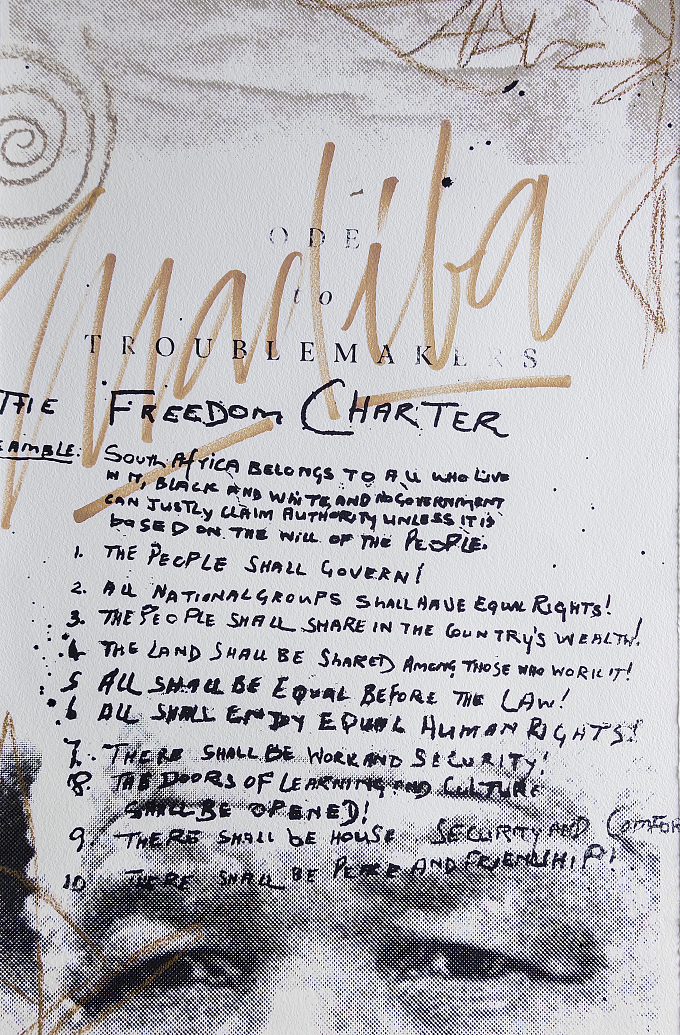 Madiba
ODE
to
TROUBLEMAKERS
THE FREEDOM CHARTER
EAMBLE: SOUTH AFRICA BELONGS TO ALL WHO LIVE
IN IT, BLACK AND WHITE, AND NO GOVERNMENT
CAN JUSTLY CLAIM AUTHORITY UNLESS IT IS
BASED ON THE WILL OF THE PEOPLE.
1. THE PEOPLE SHALL GOVERN!
2. ALL NATIONAL GROUPS SHALL HAVE EQUAL RIGHTS!
3. THE PEOPLE SHALL SHARE IN THE COUNTRY'S WEALTH!
4 THE LAND SHALL BE SHARED AMONG THOSE WHO WORK IT!
5 ALL SHALL BE EQUAL BEFORE THE LAW!
6 ALL SHALL ENJOY EQUAL HUMAN RIGHTS!
7. THERE SHALL BE WORK AND SECURITY!
8. THE DOORS OF LEARNING AND CULTURE
SHALL BE OPENED!
9. THERE SHALL BE HOUSE SECURITY AND COMFOR
10 THERE SHALL BE PEACE AND FRIENDSHIP!